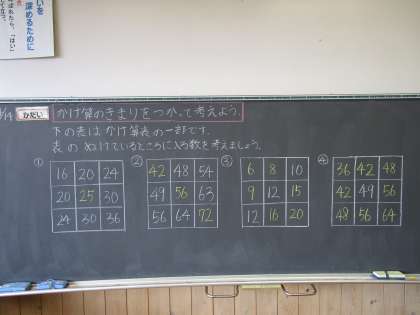 いを
深めるために
「はい」
9/14
かだい
かけ算のきまりをつかって考えよう。
下の表はかけ算表の一部です。
表のぬけているところに入る数を考えましょう。
① ② ③ ④
16 20 24 42 48 54 6 8 10 36 42 48
20 25 30 49 56 63 9 12 15 42 49 56
24 30 36 56 64 72 12 16 20 48 56 64